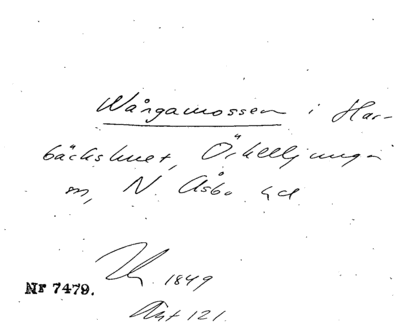 Wångamossen i Har-
bäckshult, Örkelljunga
sn, N Åsbo hd
1849
Nr 7479.
Akt 121.